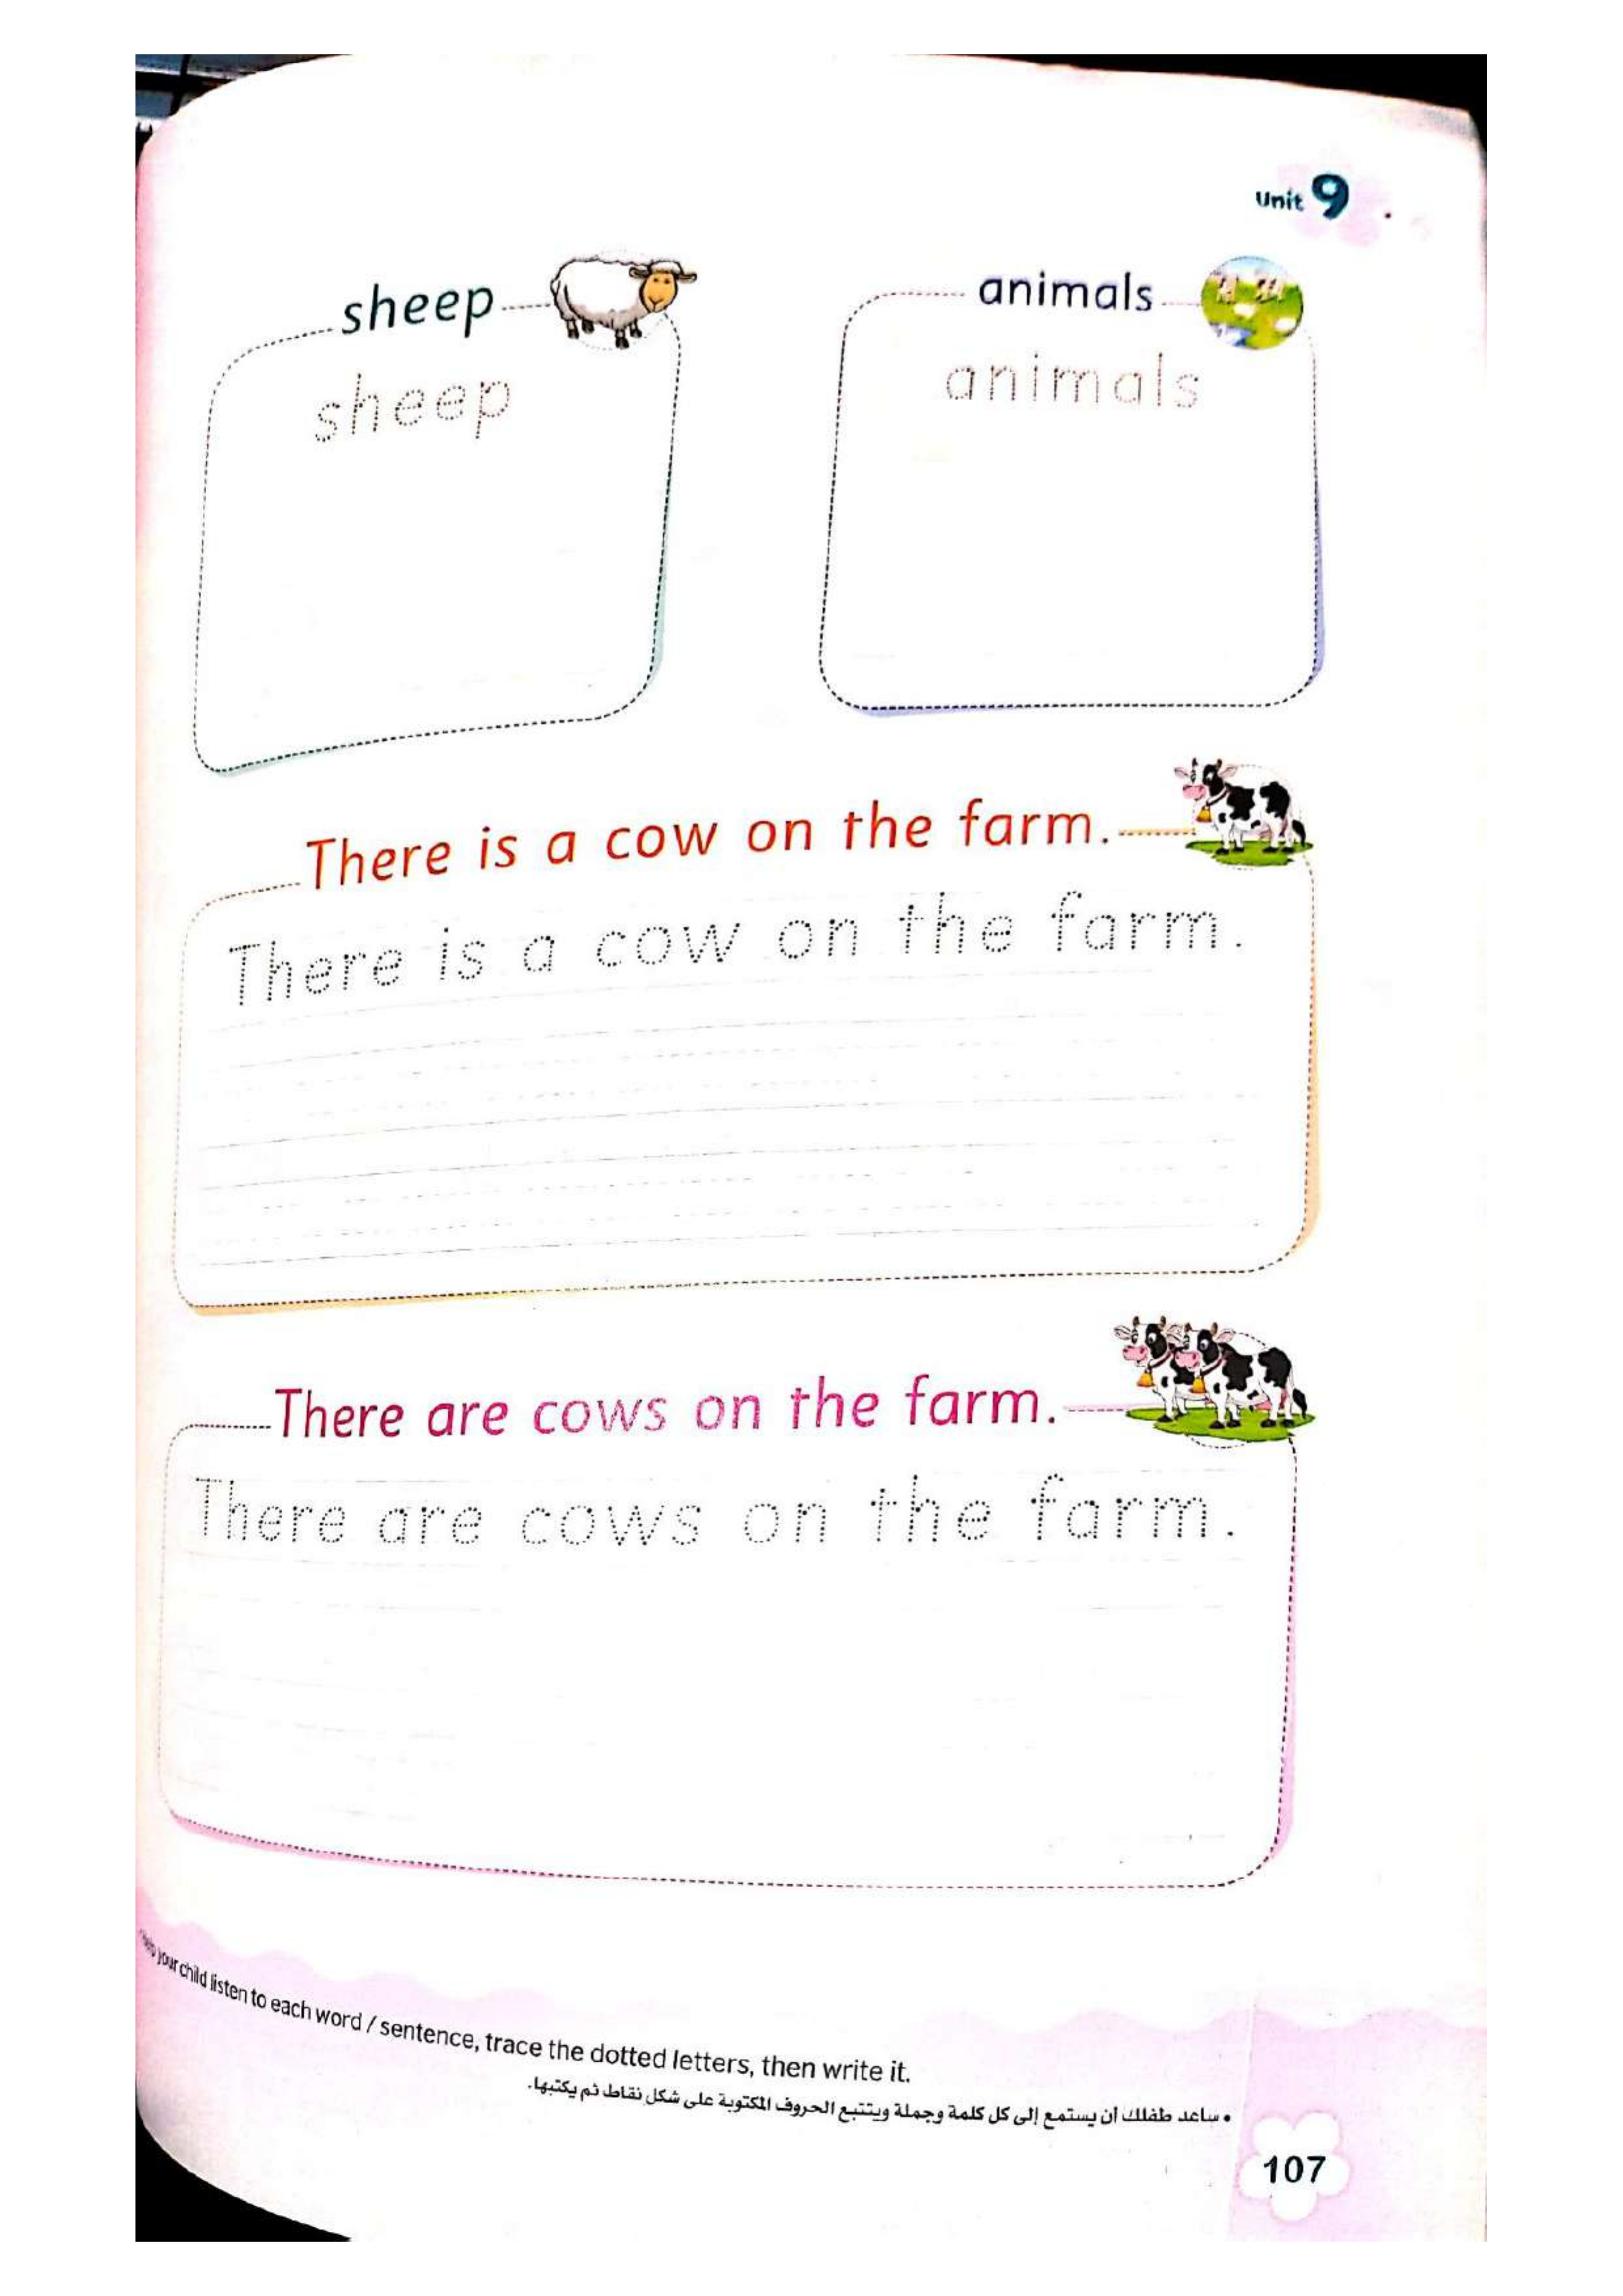 Unit 9
sheep
animals
sheep
animals
There is a cow on the farm.
There is a cow on the farm.
There are cows on the farm.
There are cows on the farm.
Help your child listen to each word / sentence, trace the dotted letters, then write it.
• ساعد طفلك أن يستمع إلى كل كلمة وجملة ويتتبع الحروف المكتوبة على شكل نقاط ثم يكتبها.
107